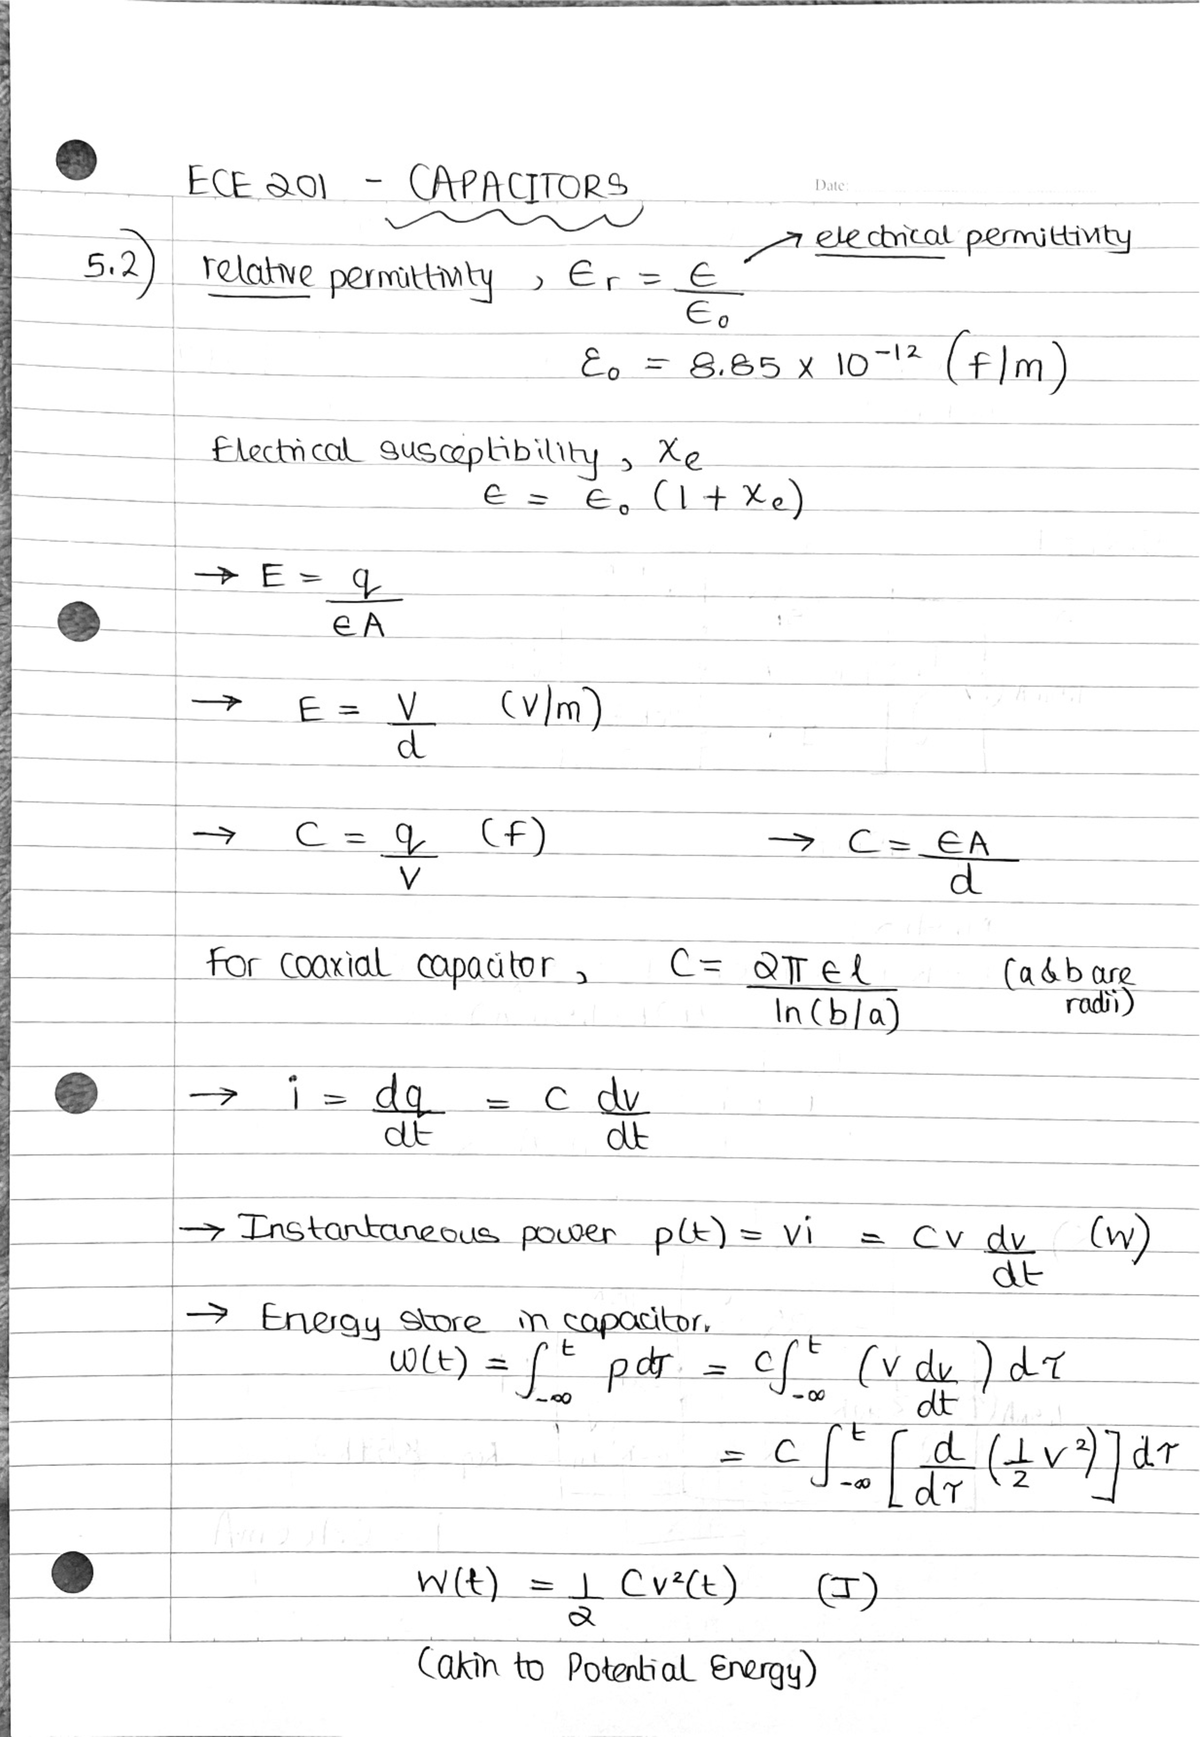 ECE 201 - CAPACITORS
Date:
5.2) relative permittivity, ϵr = ϵ/ϵ₀ → electrical permittivity
ε₀ = 8.85 × 10⁻¹² (f/m)
Electrical susceptibility, χe
ϵ = ϵ₀ (1 + χe)
→ E = q/ϵA
→ E = V/d (V/m)
→ C = q/V (f) → C = ϵA/d
For coaxial capacitor, C = 2πϵl/ln(b/a) (a & b are radii)
→ i = dq/dt = C dv/dt
→ Instantaneous power p(t) = vi = Cv dv/dt (W)
→ Energy store in capacitor.
w(t) = ∫₋∞ᵗ p dτ = C∫₋∞ᵗ (v dv/dt) dτ
= C ∫₋∞ᵗ [d/dτ (1/2 v²)] dτ
W(t) = 1/2 Cv²(t) (J)
(akin to Potential Energy)